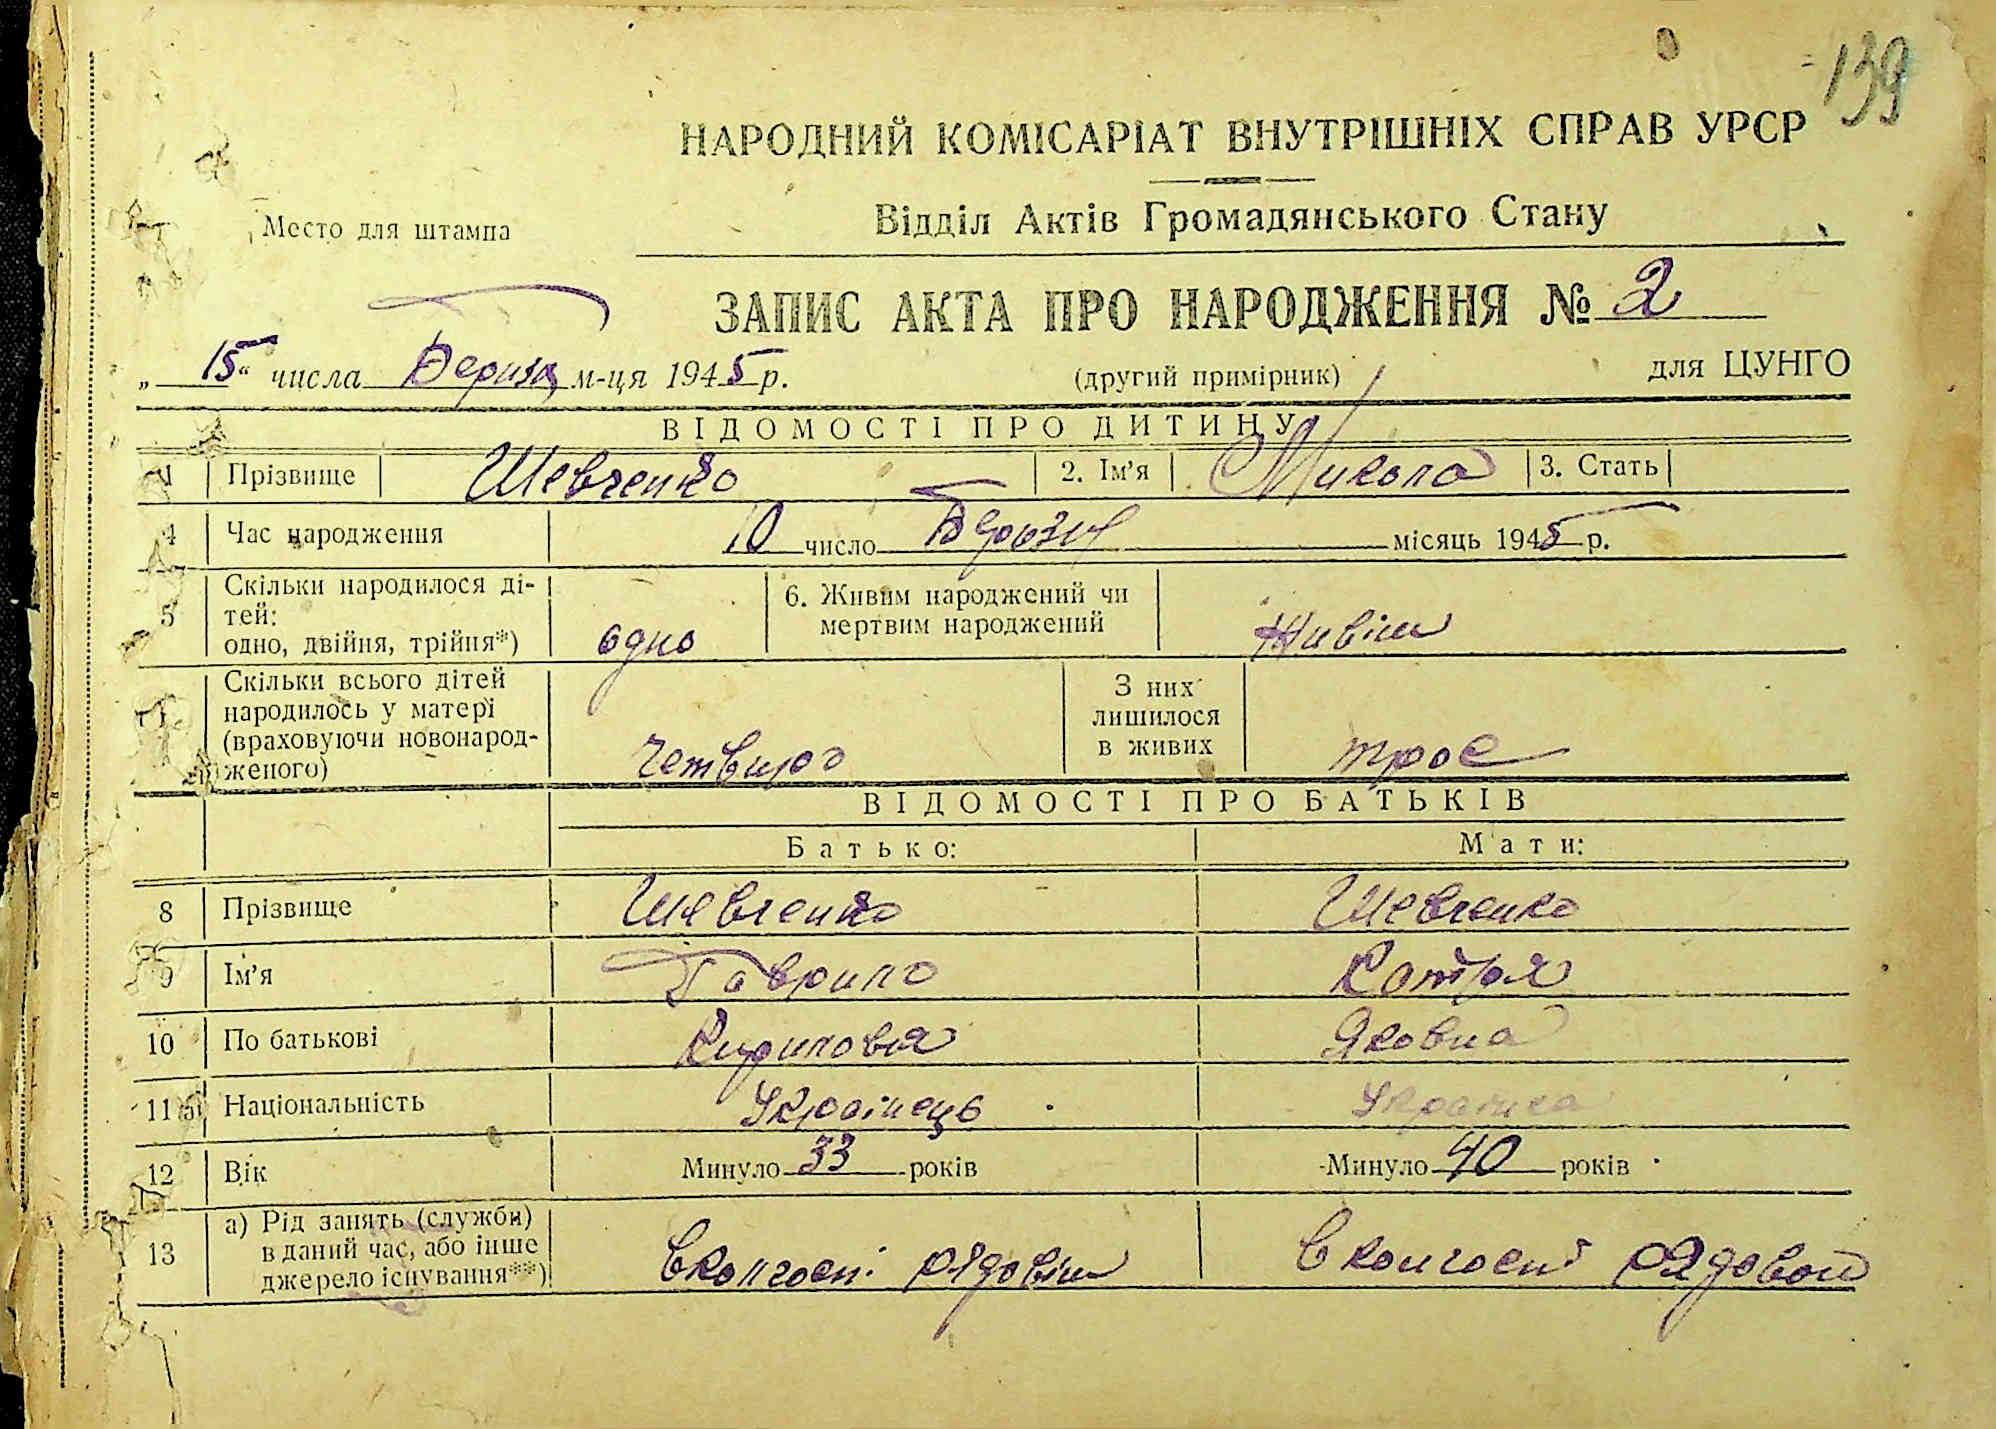 139
НАРОДНИЙ КОМІСАРІАТ ВНУТРІШНІХ СПРАВ УРСР
Место для штампа
Відділ Актів Громадянського Стану
ЗАПИС АКТА ПРО НАРОДЖЕННЯ № 2
„ 15 “ числа м-ця 1945 р. (другий примірник) для ЦУНГО
ВІДОМОСТІ ПРО ДИТИНУ
1 Прізвище Шевченко 2. Ім’я Микола 3. Стать
4 Час народження 10 число місяць 1945 р.
5 Скільки народилося ді-
тей:
одно, двійня, трійня*) одно 6. Живим народжений чи
мертвим народжений Живім
Скільки всього дітей
народилось у матері
(враховуючи новонарод-
женого) четверо З них
лишилося
в живих трое
ВІДОМОСТІ ПРО БАТЬКІВ
Батько: Мати:
8 Прізвище Шевченко Шевченко
9 Ім’я Гаврило Катря
10 По батькові Яковна
11 Національність Українець Українка
12 Вік Минуло 33 років Минуло 40 років
13 а) Рід занять (служби)
в даний час, або інше
джерело існування**) в колгоспі рядовім в колгоспі рядовой